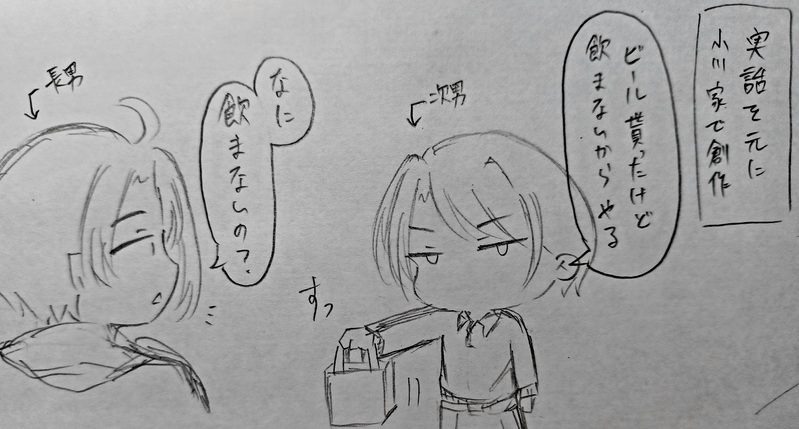 実話を元に
小川家で創作
ビール貰ったけど
飲まないからやる
←次男
すっ
なに
飲まないの?
←長男